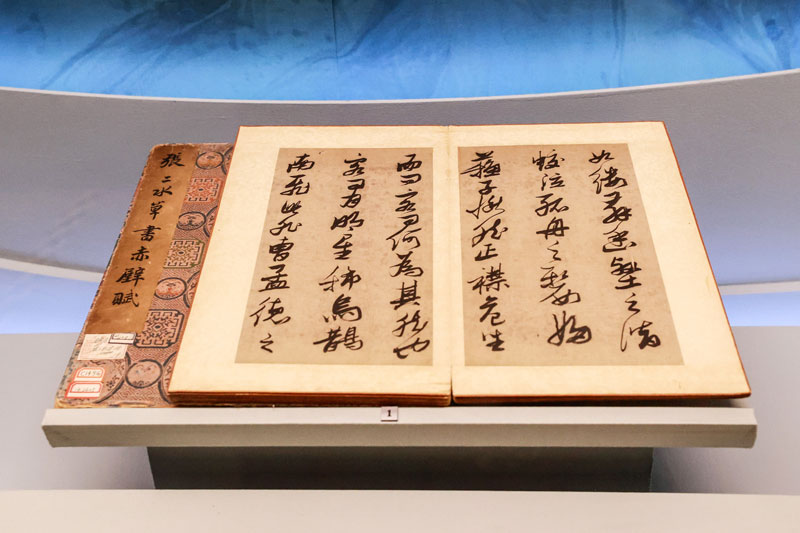 如縷舞幽壑之潛
蛟泣孤舟之嫠婦
蘇子愀然正襟危坐
而問客曰何為其然也
客曰月明星稀烏鵲
南飛此非曹孟德之
張二水草書赤壁賦
1